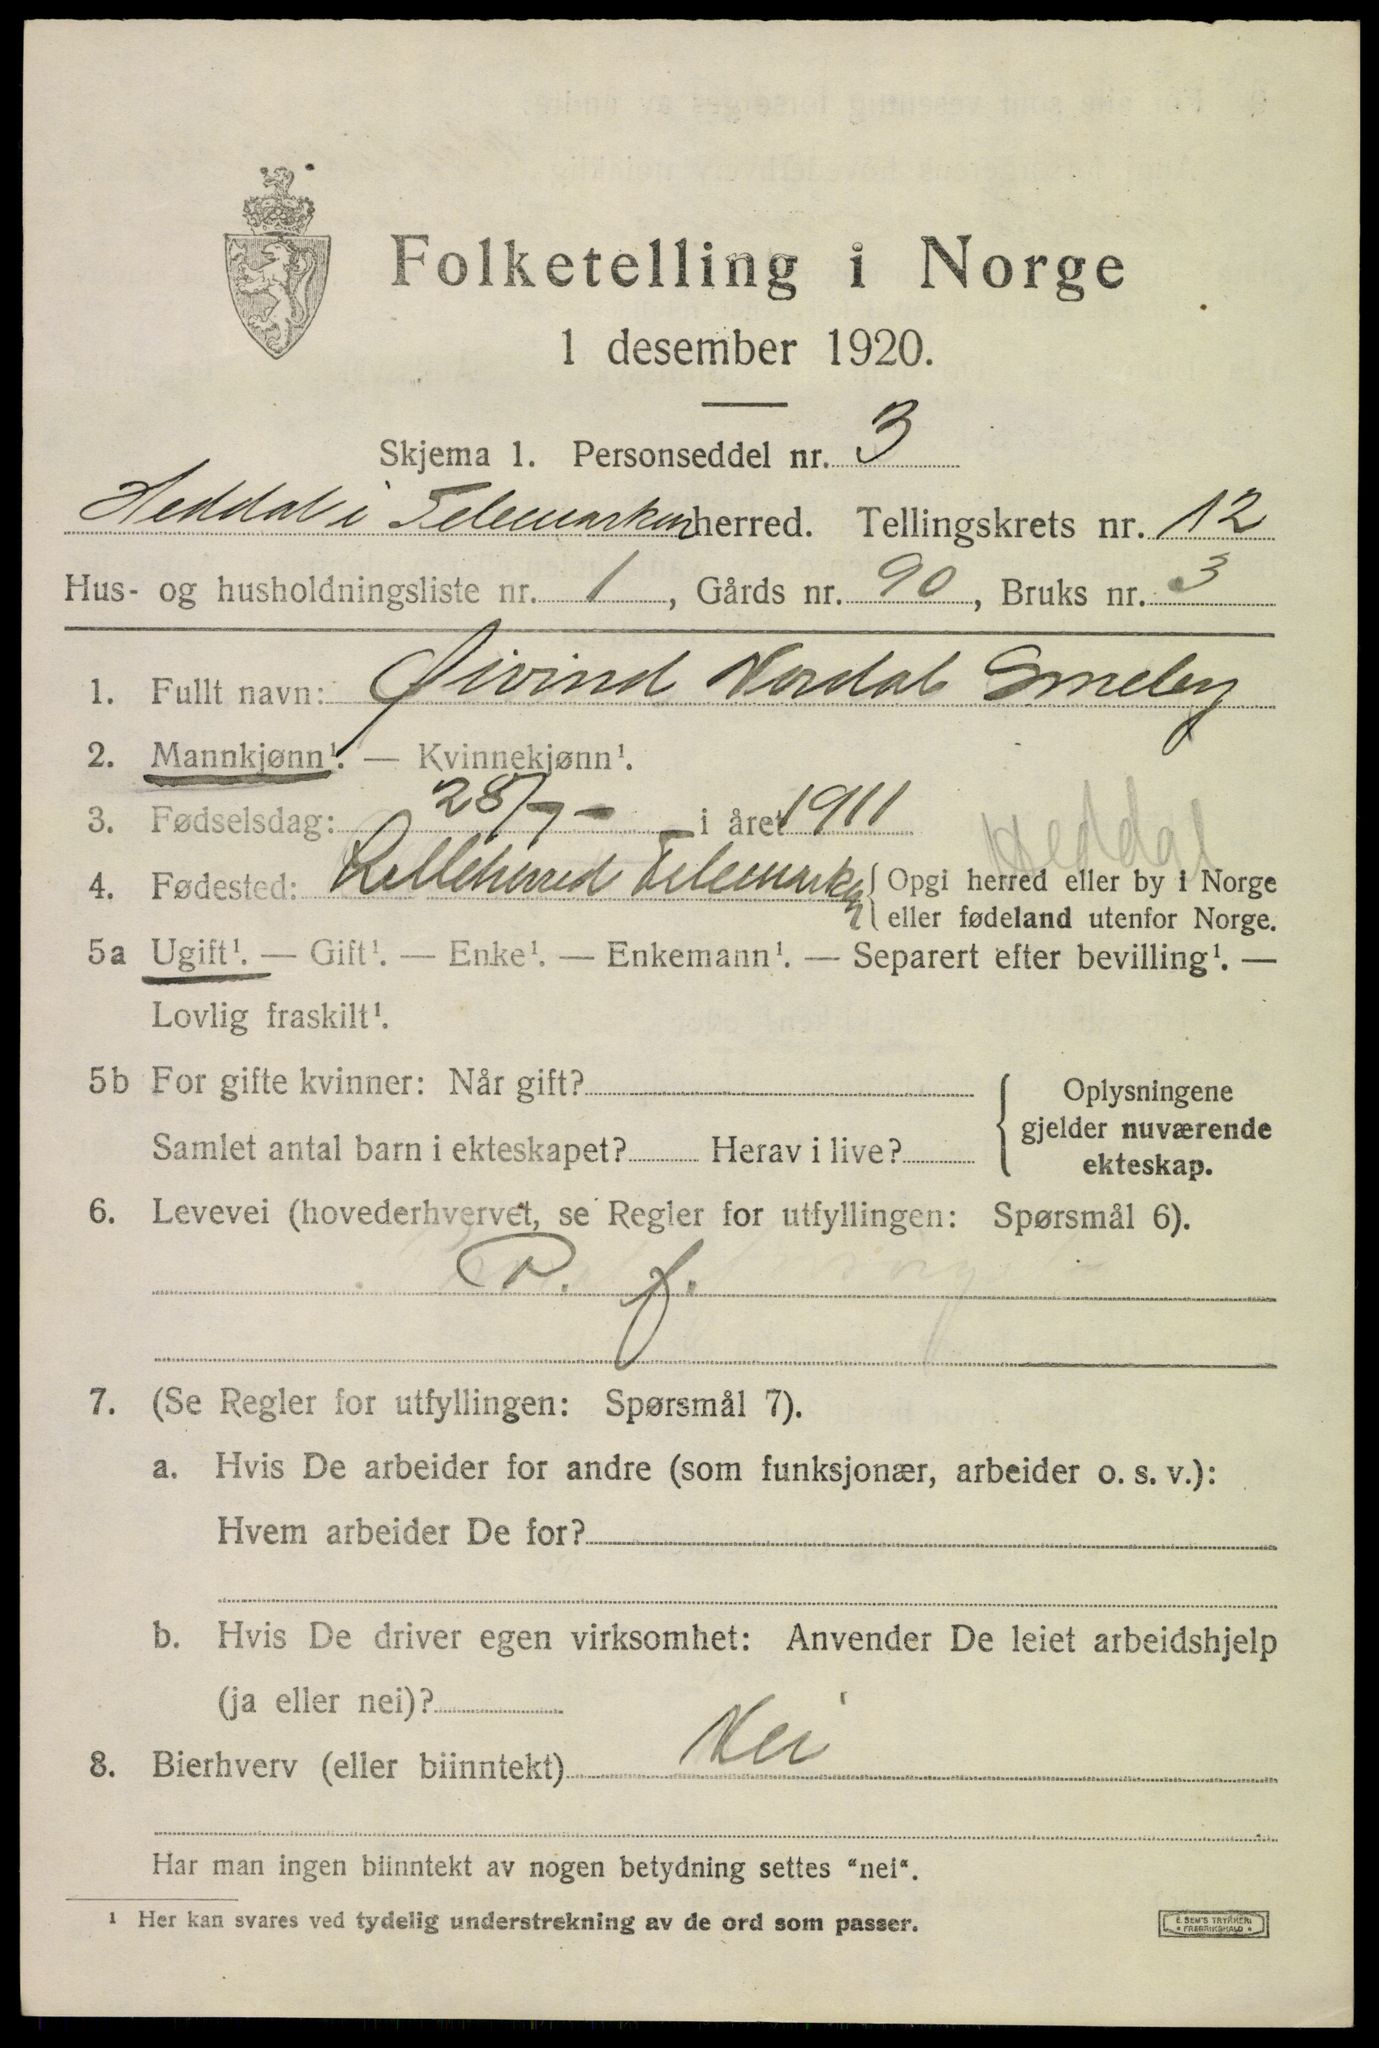 Folketelling i Norge
1 desember 1920.
Skjema 1. Personseddel nr. 3
Heddal i Telemarken herred. Tellingskrets nr. 12
Hus- og husholdningsliste nr. 1, Gårds nr. 90, Bruks nr. 3
1. Fullt navn: Øivind Nordal Smeby
2. Mannkjønn¹. — Kvinnekjønn¹.
3. Fødselsdag: 28/7 - i året 1911
Heddal
4. Fødested: Lilleherred Telemarken { Opgi herred eller by i Norge
eller fødeland utenfor Norge.
5a Ugift¹. — Gift¹. — Enke¹. — Enkemann¹. — Separert efter bevilling¹. —
Lovlig fraskilt¹.
5b For gifte kvinner: Når gift?
Samlet antal barn i ekteskapet? Herav i live?
Oplysningene
gjelder nuværende
ekteskap.
6. Levevei (hovederhvervet, se Regler for utfyllingen: Spørsmål 6).
P. f.
7. (Se Regler for utfyllingen: Spørsmål 7).
a. Hvis De arbeider for andre (som funksjonær, arbeider o. s. v.):
Hvem arbeider De for?
b. Hvis De driver egen virksomhet: Anvender De leiet arbeidshjelp
(ja eller nei)?
8. Bierhverv (eller biinntekt) Nei
Har man ingen biinntekt av nogen betydning settes "nei".
¹ Her kan svares ved tydelig understrekning av de ord som passer.
E. SEM'S TRYKKERI
FREDRIKSHALD